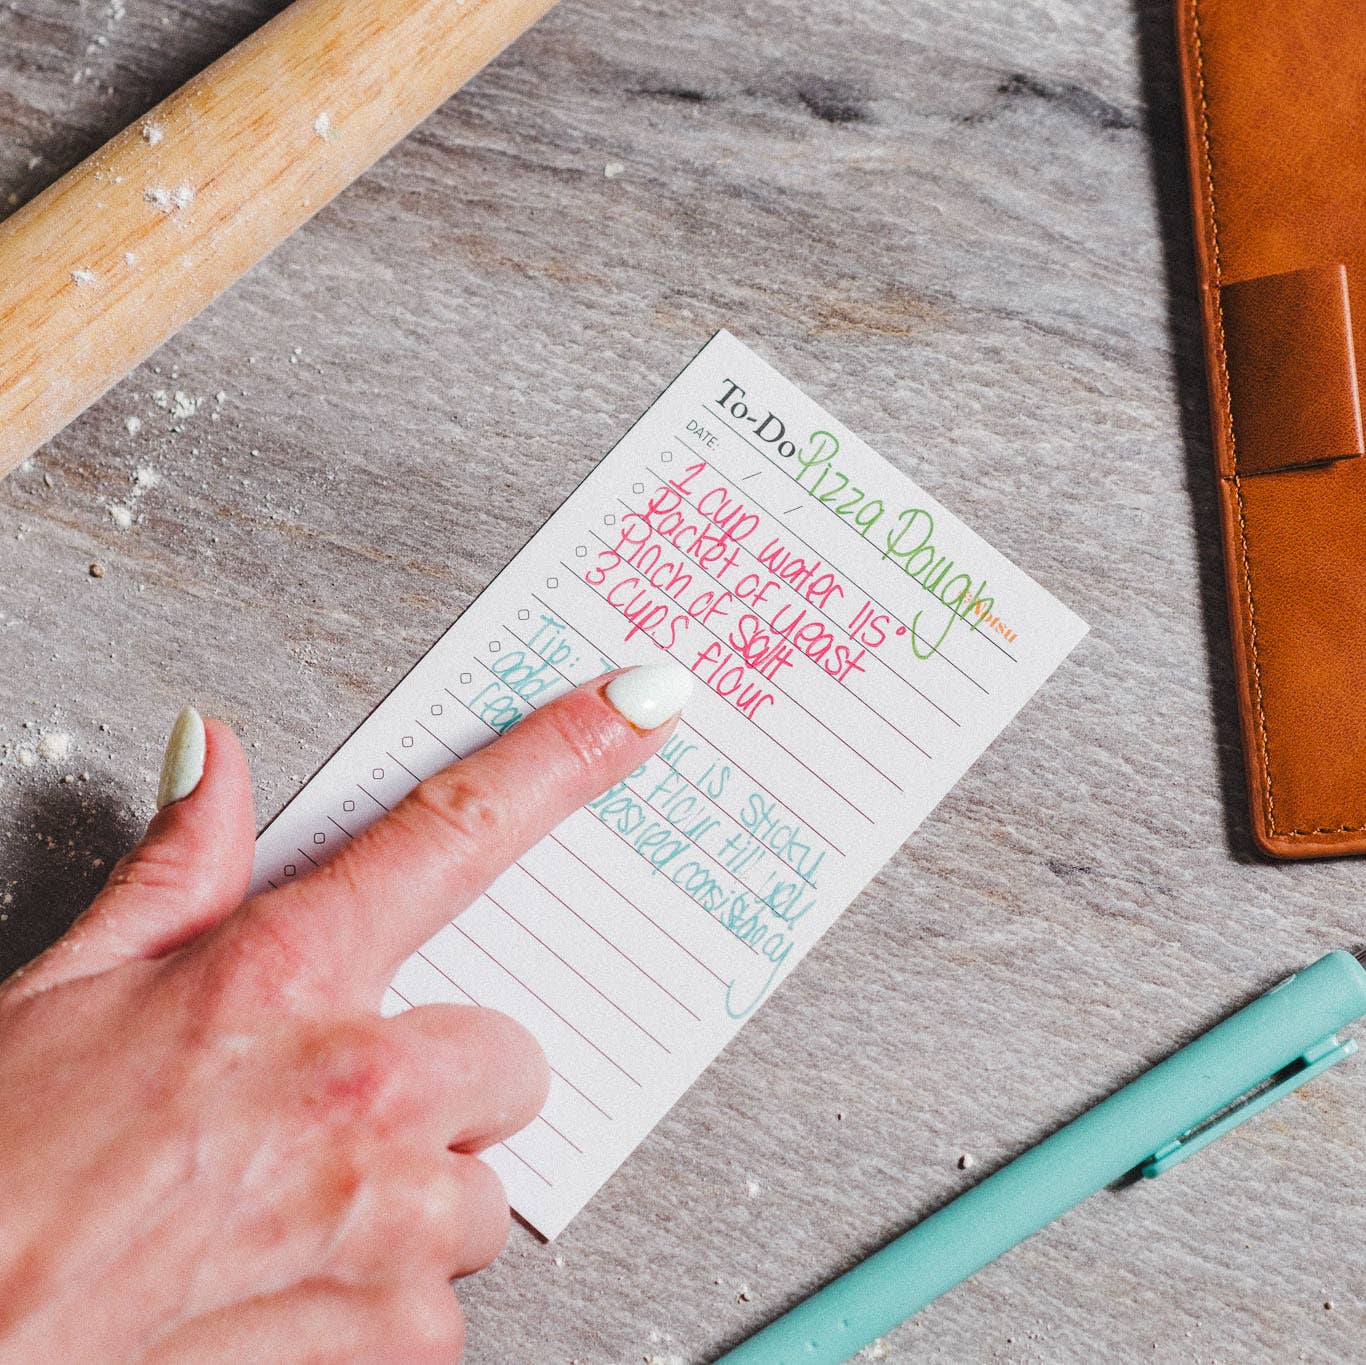 To-Do Pizza Dough
DATE: / /
Notsu
1 cup water 115°
Packet of yeast
Pinch of salt
3 cups flour
Tip: is sticky
add flour till you
desired consistency